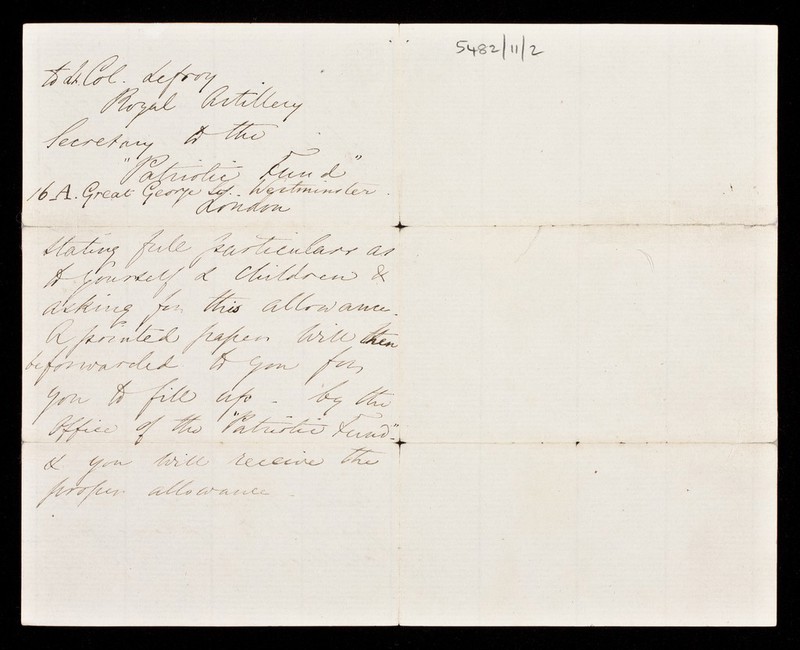 5482/11/2
to Lt. Col. Lefroy
Royal Artillery
Secretary to the
"Patriotic Fund"
16 A. Great George St. Westminster.
London
stating full particulars as
to yourself & children &
asking for this allowance.
A printed paper will then
be forwarded to you for
you to fill up - by the
Office of the "Patriotic Fund" -
& you will receive the
proper allowance.